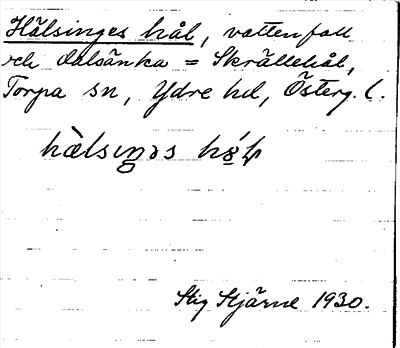 Hälsinges hål, vattenfall
och dalsänka = Skrällehål,
Torpa sn, Ydre hd, Österg. l.
Stig Stjärne 1930.